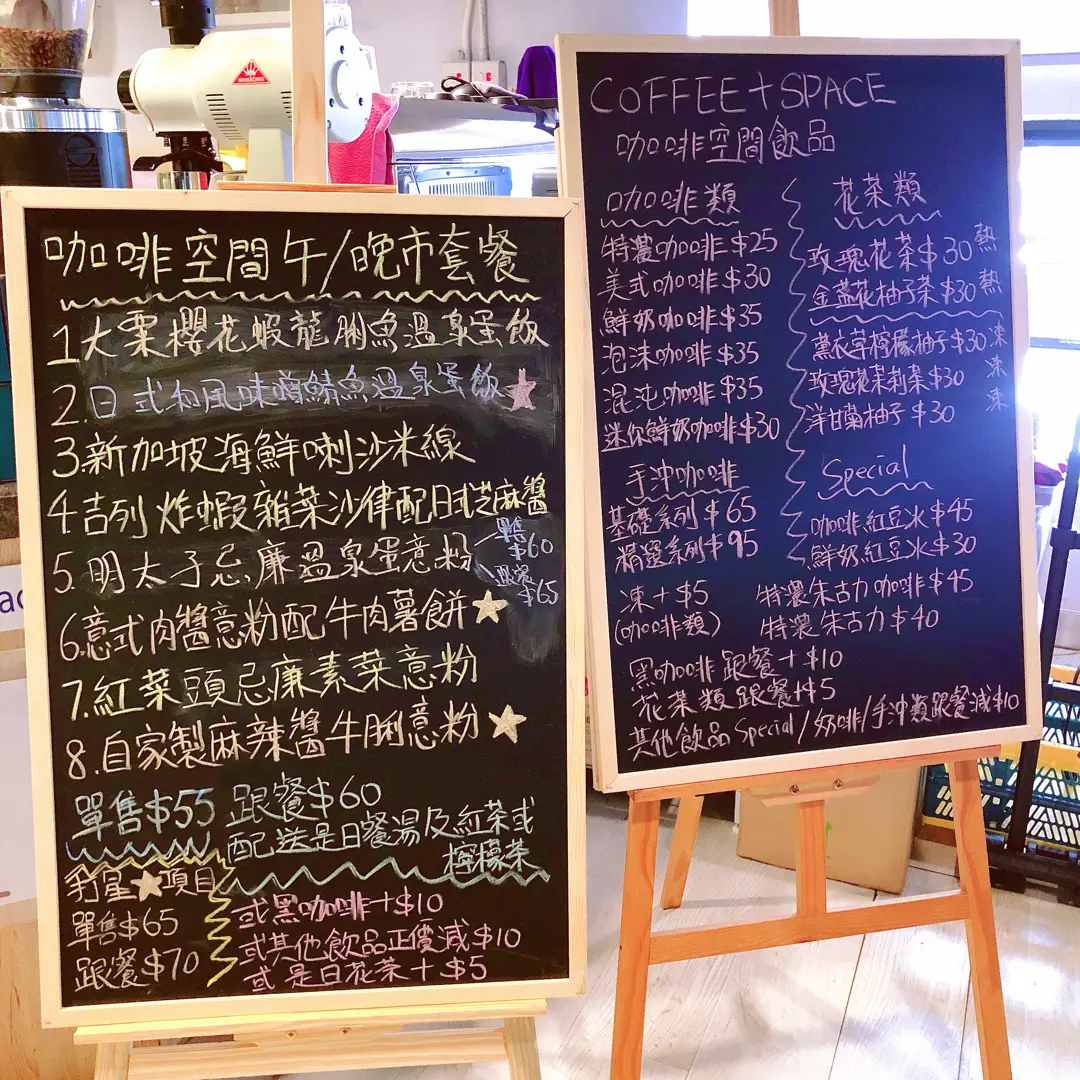 咖啡空間午/晚市套餐
1大栗櫻花蝦龍脷魚溫泉蛋飯
2.日式和風味噌鯖魚溫泉蛋飯★
3.新加坡海鮮喇沙米線
4吉列炸蝦雜菜沙律配日式芝麻醬
5.明太子忌廉溫泉蛋意粉
單售
$60
跟餐
$65
6.意式肉醬意粉配牛肉薯餅★
7.紅菜頭忌廉素菜意粉
8.自家製麻辣醬牛脷意粉★
單售$55 跟餐$60
配送是日餐湯及紅茶或
檸檬茶
打星★項目
單售$65
跟餐$70
或黑咖啡+$10
或其他飲品正價減$10
或是日花茶+$5
COFFEE+SPACE
咖啡空間飲品
咖啡類
特濃咖啡$25
美式咖啡$30
鮮奶咖啡$35
泡沫咖啡$35
混沌咖啡$35
迷你鮮奶咖啡$30
手沖咖啡
基礎系列$65
精選系列$95
凍+$5
(咖啡類)
花茶類
玫瑰花茶$30熱
金盞花柚子茶$30熱
薰衣草檸檬柚子$30凍
玫瑰花茉莉茶$30凍
洋甘菊柚子$30凍
Special
咖啡紅豆冰$45
鮮奶紅豆冰$30
特濃朱古力咖啡$45
特濃朱古力$40
黑咖啡跟餐+$10
花茶類跟餐+$5
其他飲品Special/奶啡/手沖類跟餐減$10